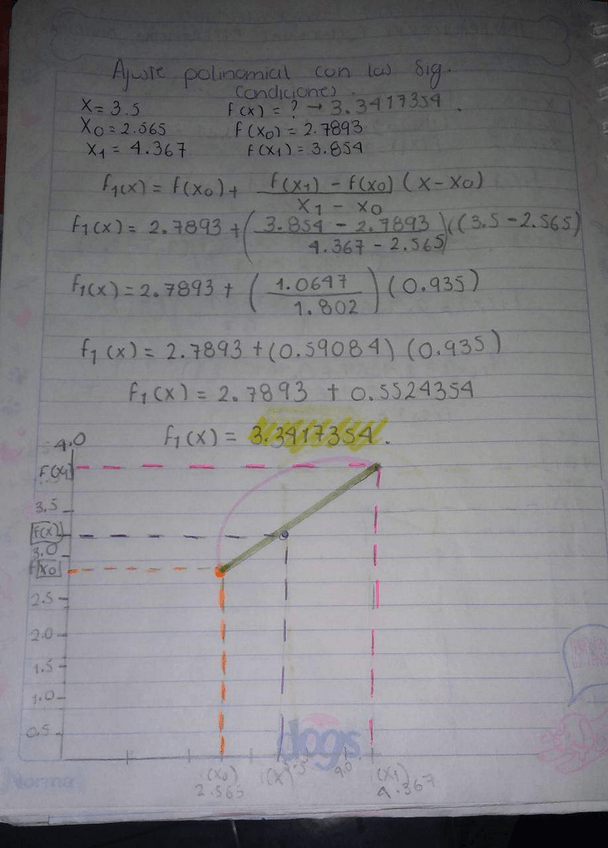 Ajuste polinomial con las Sig.
Condiciones.
X = 3.5 f(x) = ? → 3.3417354.
X0 = 2.565 f(x0) = 2.7893
X1 = 4.367 f(x1) = 3.854
f1(x) = f(x0) + f(x1) - f(x0) (x - x0)
x1 - x0
f1(x) = 2.7893 + (3.854 - 2.7893) ((3.5 - 2.565)
4.367 - 2.565
f1(x) = 2.7893 + (1.0647) (0.935)
1.802
f1(x) = 2.7893 + (0.59084) (0.935)
f1(x) = 2.7893 + 0.5524354
f1(x) = 3.3417354.
4.0
F(x1)
3.5
f(x)
3.0
f(x0)
2.5
2.0
1.5
1.0
0.5
dogs
(x0) (x) 3.5 4.0 (x1)
2.565 4.367
Norma